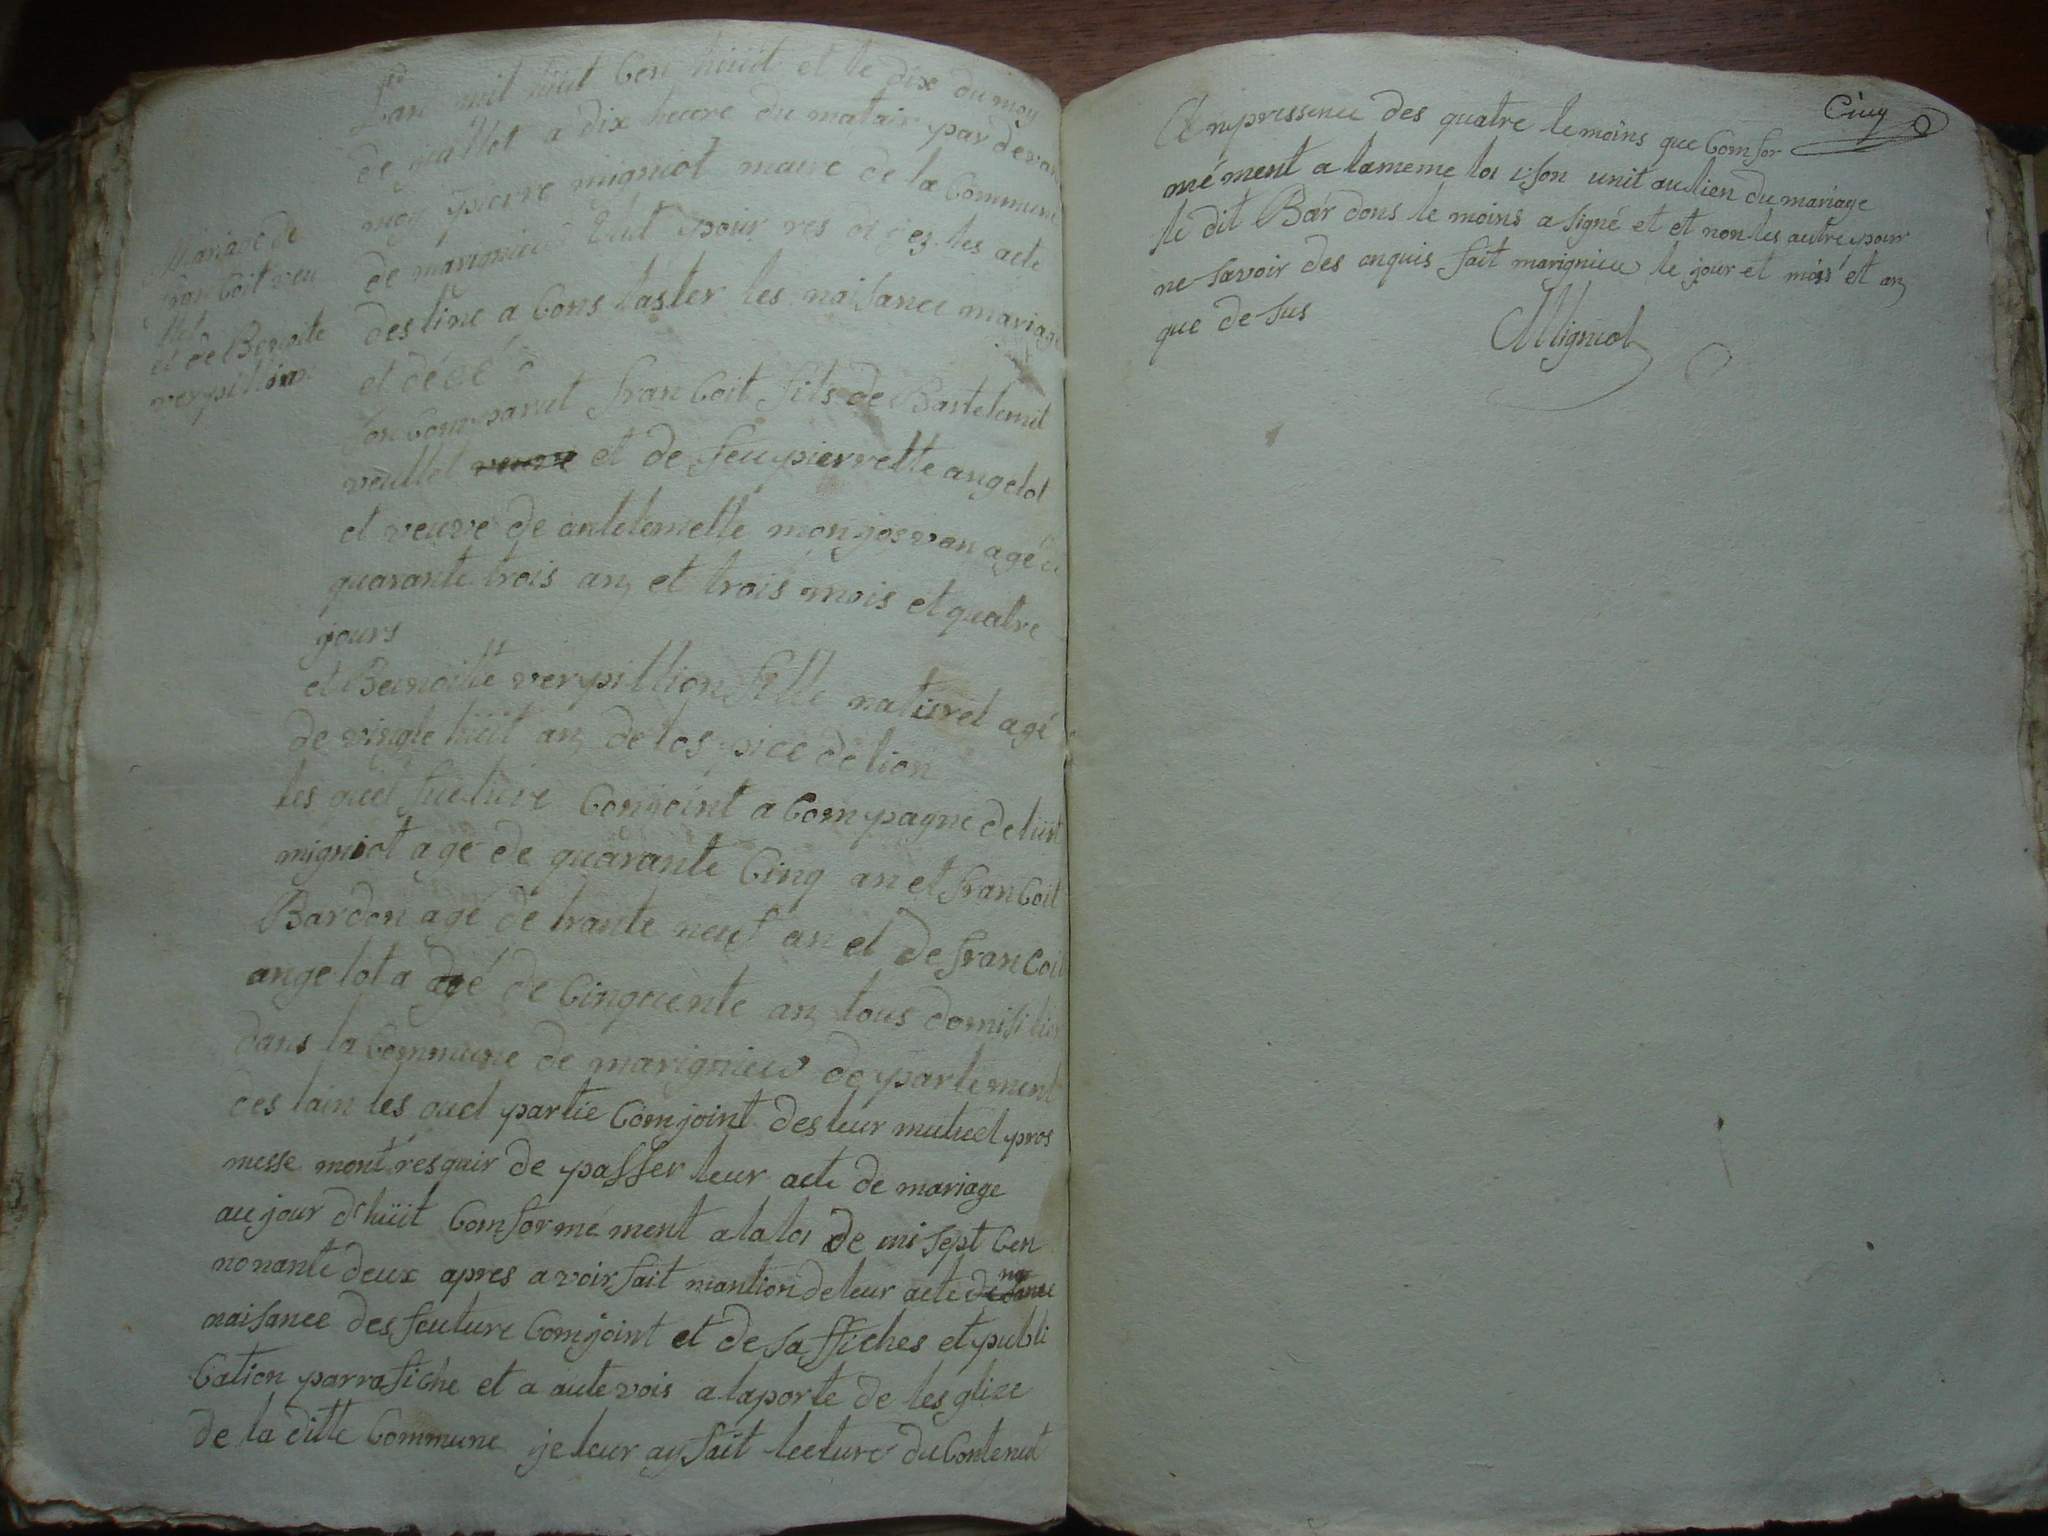 Lan mil huit Cen huit et le dix du moy
de juillot a dix heure du matair par devan
moy pierre migniot maire de la Commune
de marignieu Elut pour res de les acte
destine a Cons taster les naisance mariage
et décé
Mariage de
fran Coit veu
llet
et de Benoite
verpillion
son Comparut fran Coit fils de Bartelemit
veullet et de feu pierrette angelot
et veuve de antelemette monjosvan agé de
quarante trois an et trois mois et quatre
jours
et Benoitte verpillion fille naturel agé
de vingte huit an de los pice de lion
les quel future Conjoint a Compagne de
migniot agé de quarante Cinq an et fran Coit
Bardon agé de trante neuf an et de fran Coit
angelot a agé de Cinquente an tous domisilier
dans la Commune de marignieu de partement
des lain les quel partie Comjoint des leur mutuel pros
messe mont res quir de passer leur acte de mariage
au jour dhuit Comformé ment a la loi de mi sept Cen
nonante deux apres avoir fait mantion de leur acte de
naisance des feuture Comjoint et de saffiches et publi
Cation parrafiche et a aute vois a la porte de les glize
de la ditte Commune je leur ay fait lecture du Contenut
Cinq
Enpressence des quatre temoins que Comfor
mément a la meme loi ison unit au lien du mariage
le dit Bar dons te moins a signé et et non les autre pour
ne savoir des anquis fait marignieu le jour et mois et an
que de sus
Migniot